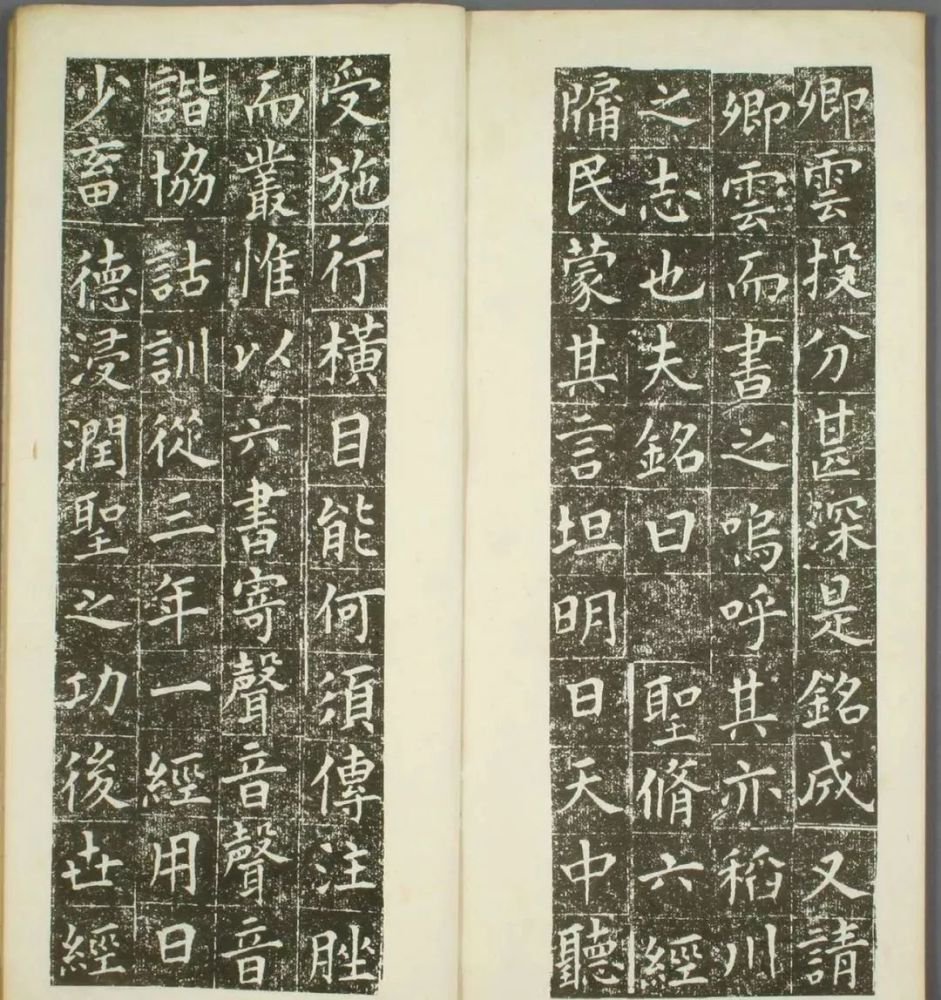 卿雲投分甚深是銘成又請
卿雲而書之嗚呼其亦稻川
之志也夫銘曰　聖脩六經
牖民蒙其言坦明日天中聽
受施行橫目能何須傳注脞
而叢惟以六書寄聲音聲音
諧協詁訓從三年一經用日
少畜德浸潤聖之功後世經